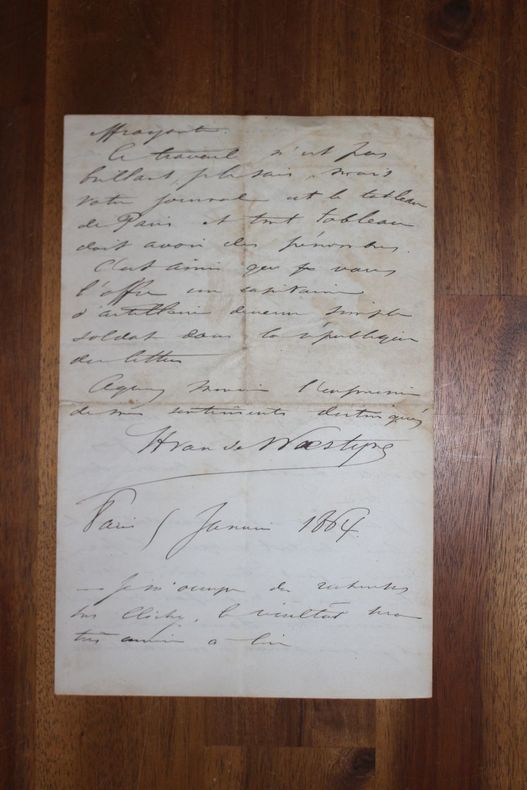 effrayante.
Ce travail n'est pas
brillant, je le sais, mais
votre journal est le tableau
de Paris et tout tableau
doit avoir des pénombres.
C'est ainsi que je vous
l'offre un capitaine
d'artillerie devenu simple
soldat dans la république
des lettres
Agréez Monsieur l'expression
de mes sentiments distingués
H van de
Paris 5 Janvier 1864
— Je m'occupe de recherches
sur Clichy, le résultat sera
très à lire